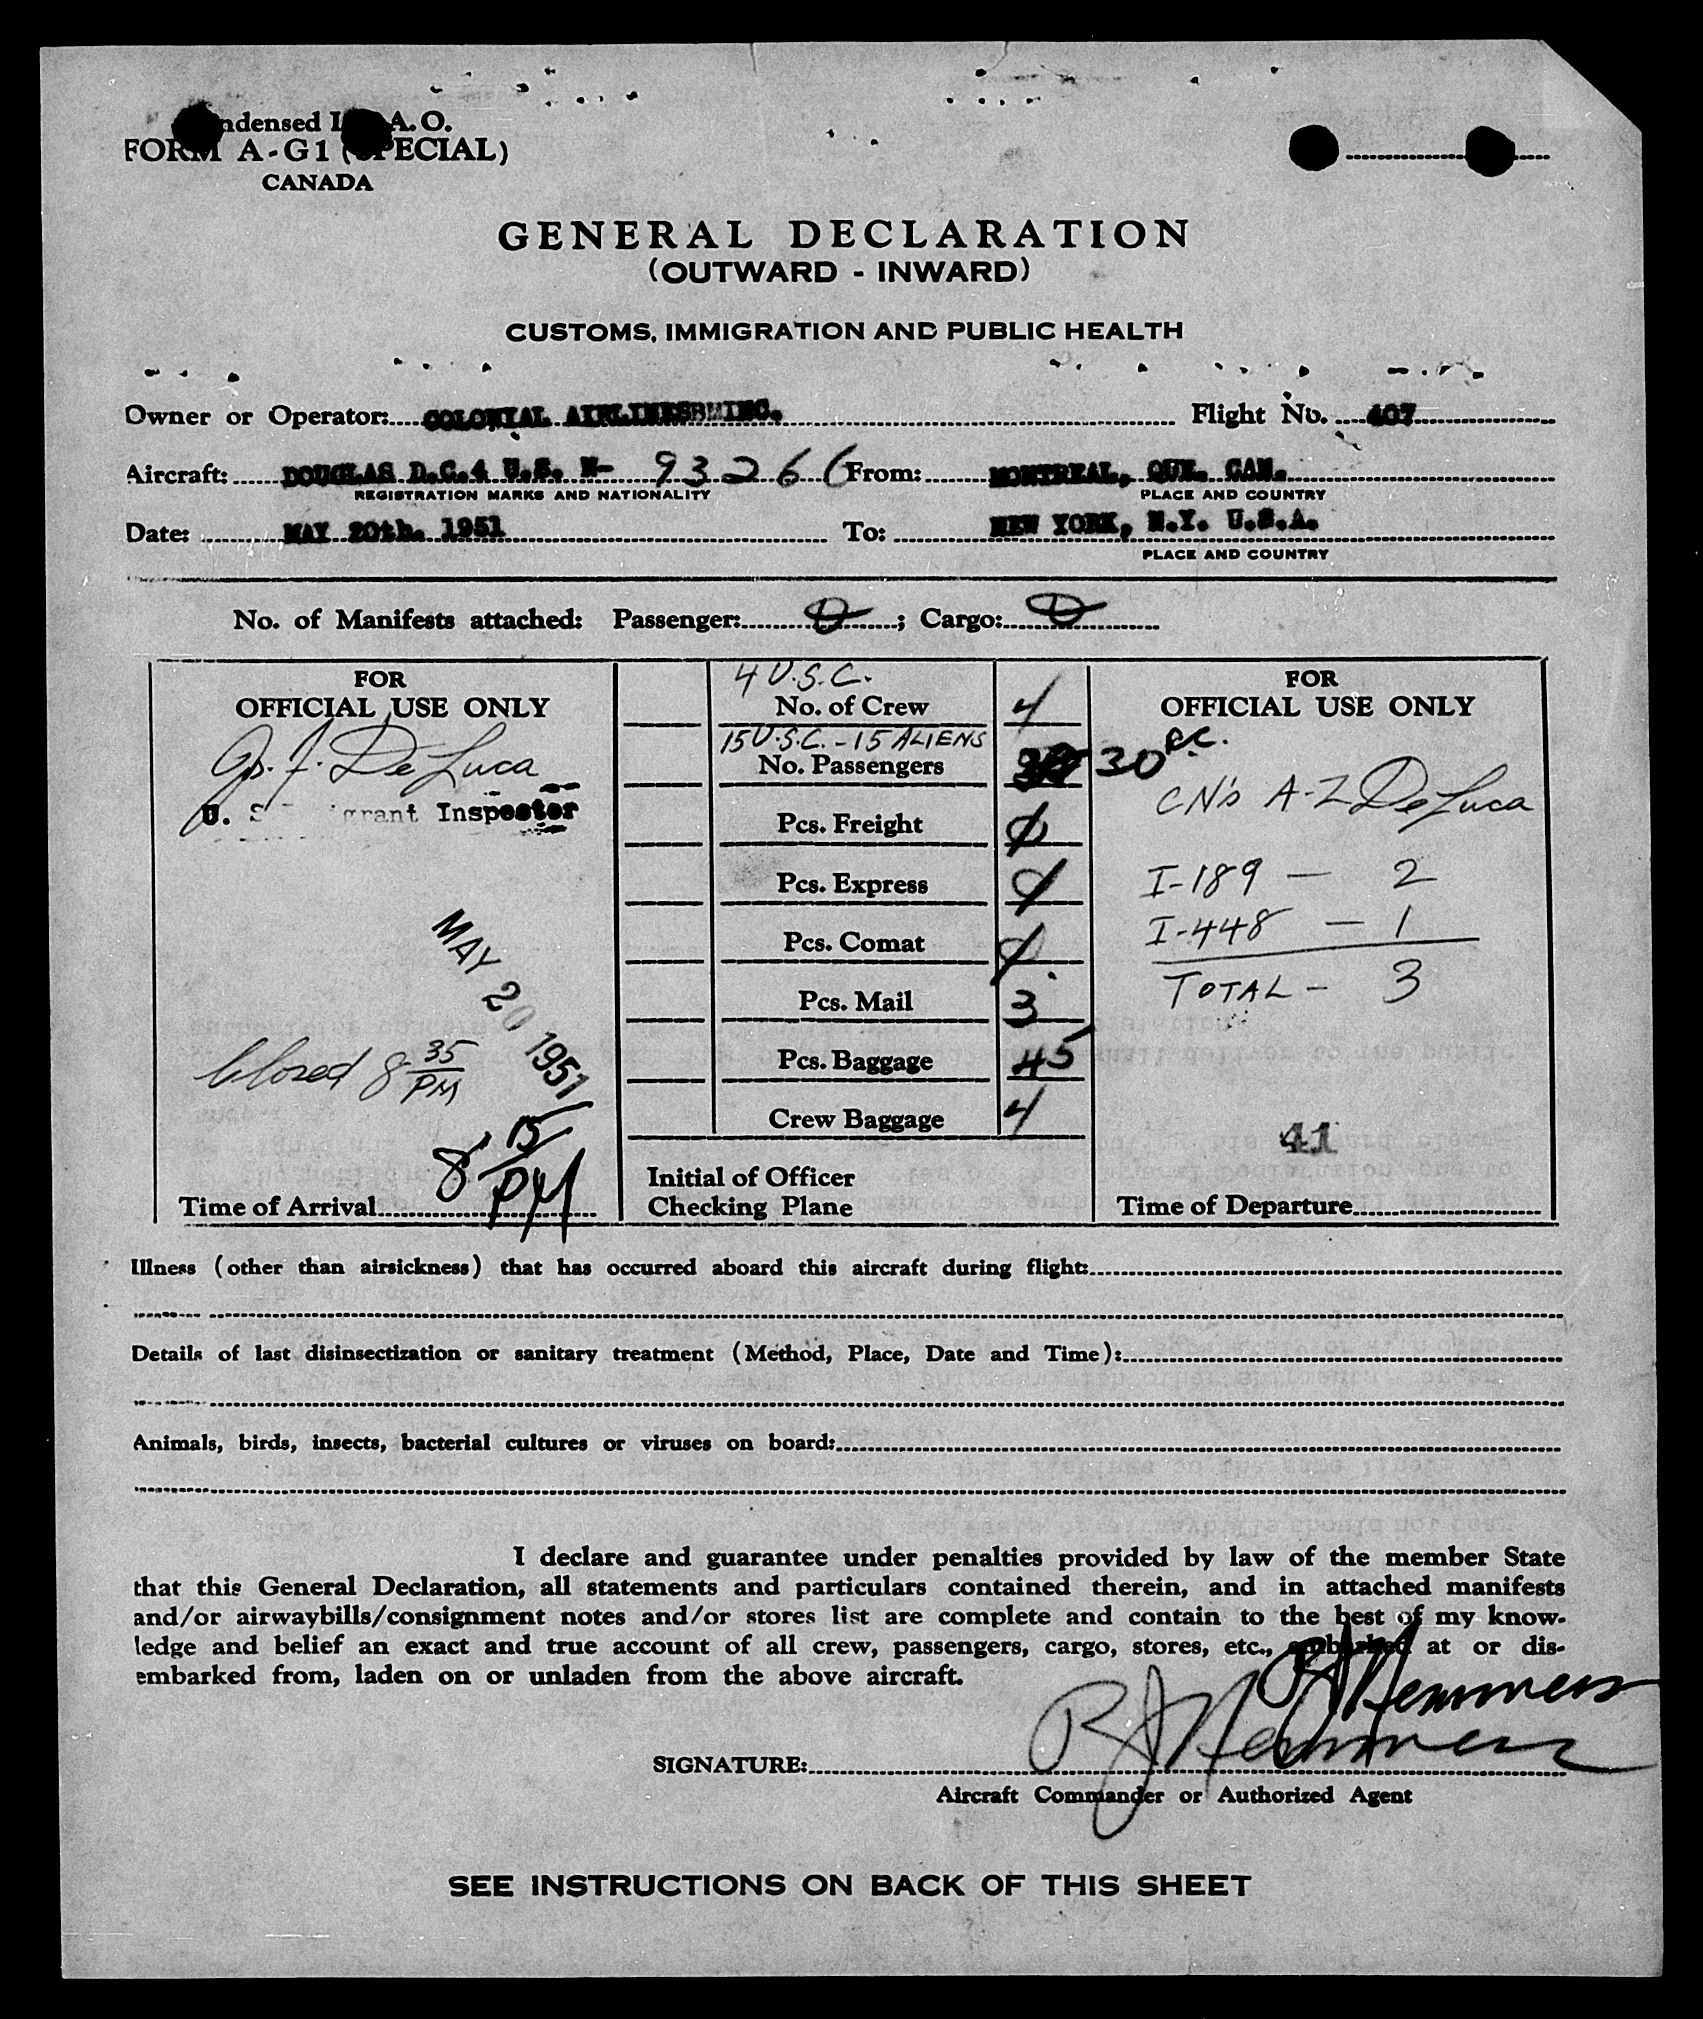 Condensed I.C.A.O.
FORM A-G1 (SPECIAL)
CANADA
GENERAL DECLARATION
(OUTWARD - INWARD)
CUSTOMS, IMMIGRATION AND PUBLIC HEALTH
Owner or Operator: COLONIAL AIRLINES INC. Flight No. 407
Aircraft: DOUGLAS D.C.4 U.S. N- 93266 From: MONTREAL, QUE. CAN.
REGISTRATION MARKS AND NATIONALITY PLACE AND COUNTRY
Date: MAY 20th. 1951 To: NEW YORK, N.Y. U.S.A.
PLACE AND COUNTRY
No. of Manifests attached: Passenger: 0 ; Cargo: 0
FOR
OFFICIAL USE ONLY
De Luca
U. S. Immigrant Inspector
MAY 20 1951
Closed 8 35 PM
8:15 PM
Time of Arrival
4 U.S.C.
No. of Crew 4
15 U.S.C. - 15 ALIENS
No. Passengers 30
Pcs. Freight 0
Pcs. Express 0
Pcs. Comat 0
Pcs. Mail 3
Pcs. Baggage 45
Crew Baggage 4
Initial of Officer
Checking Plane
FOR
OFFICIAL USE ONLY
CN's A-Z De Luca
I-189 - 2
I-448 - 1
TOTAL - 3
41
Time of Departure
Illness (other than airsickness) that has occurred aboard this aircraft during flight:
Details of last disinsectization or sanitary treatment (Method, Place, Date and Time):
Animals, birds, insects, bacterial cultures or viruses on board:
I declare and guarantee under penalties provided by law of the member State
that this General Declaration, all statements and particulars contained therein, and in attached manifests
and/or airwaybills/consignment notes and/or stores list are complete and contain to the best of my know-
ledge and belief an exact and true account of all crew, passengers, cargo, stores, etc., embarked at or dis-
embarked from, laden on or unladen from the above aircraft.
RJ Hemmers
SIGNATURE: RJ Hemmers
Aircraft Commander or Authorized Agent
SEE INSTRUCTIONS ON BACK OF THIS SHEET